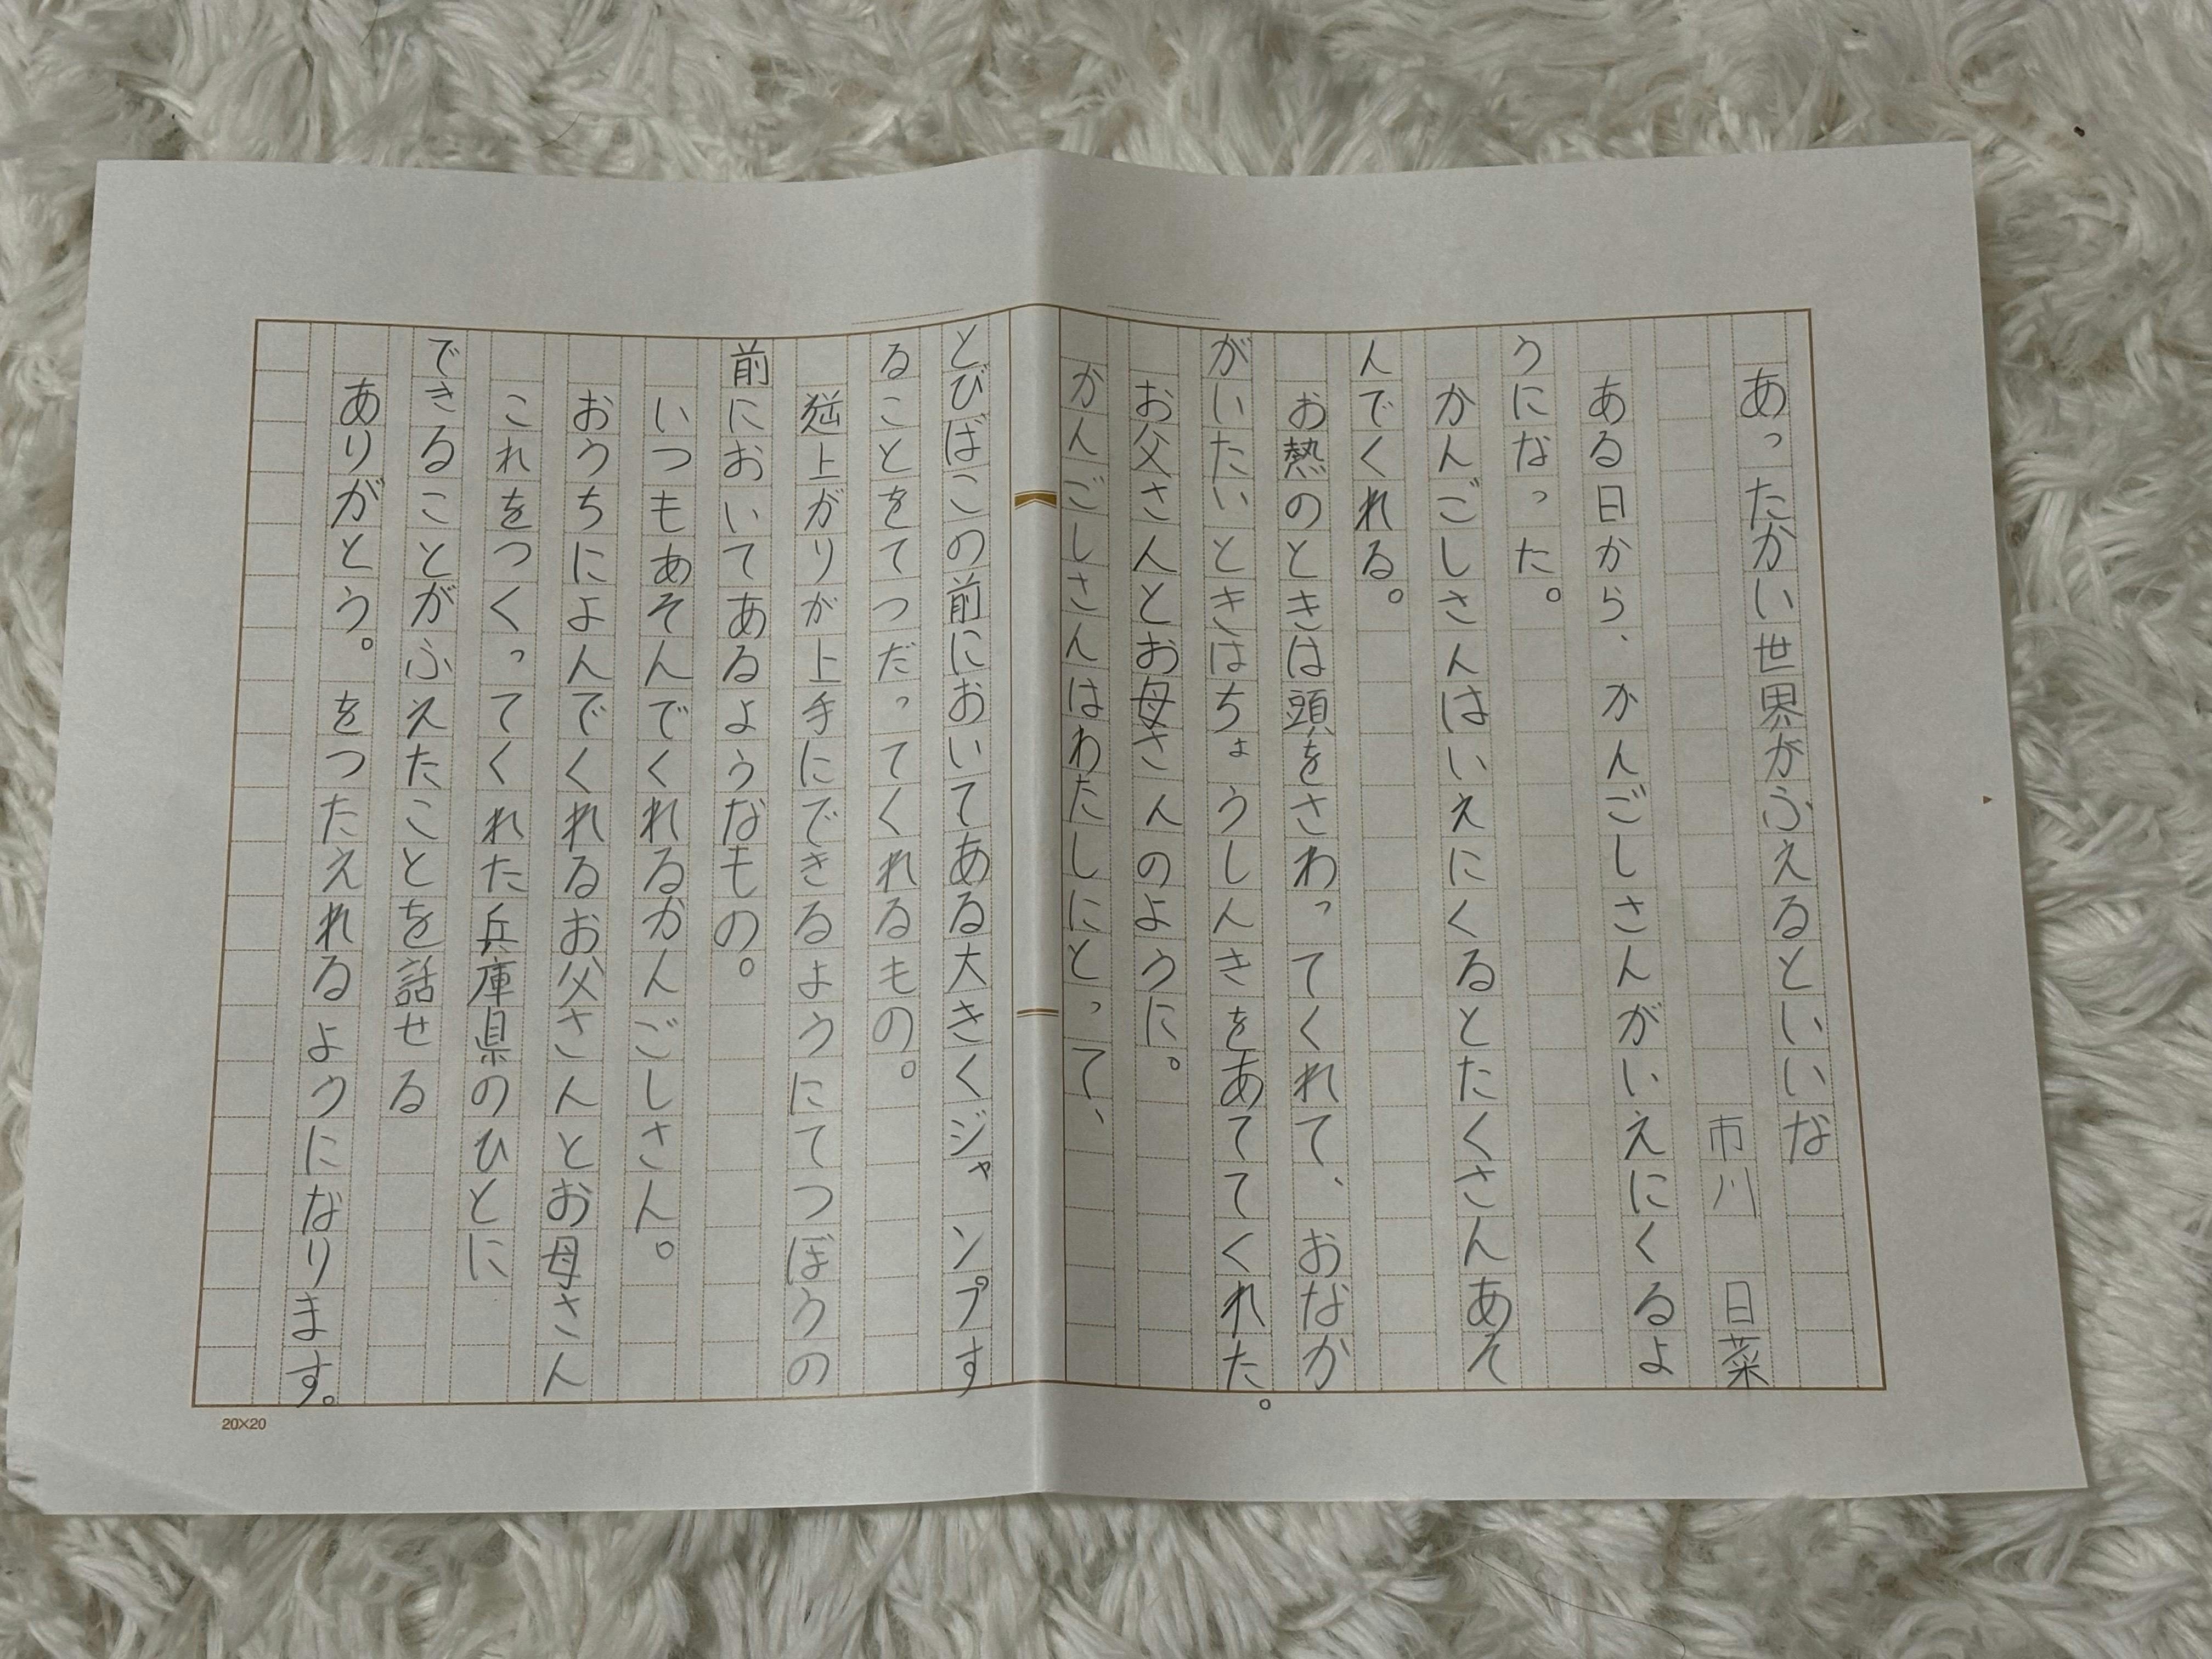 あったかい世界がふえるといいな
市川 日菜
ある日から、かんごしさんがいえにくるよ
うになった。
かんごしさんはいえにくるとたくさんあそ
んでくれる。
お熱のときは頭をさわってくれて、おなか
がいたいときはちょうしんきをあててくれた。
お父さんとお母さんのように。
かんごしさんはわたしにとって、
とびばこの前においてある大きくジャンプす
ることをてつだってくれるもの。
上がりが上手にできるようにてつぼうの
前においてあるようなもの。
いつもあそんでくれるかんごしさん。
おうちによんでくれるお父さんとお母さん
これをつくってくれた兵庫県のひとに
できることがふえたことを話せる
ありがとう。をつたえれるようになります。
20×20